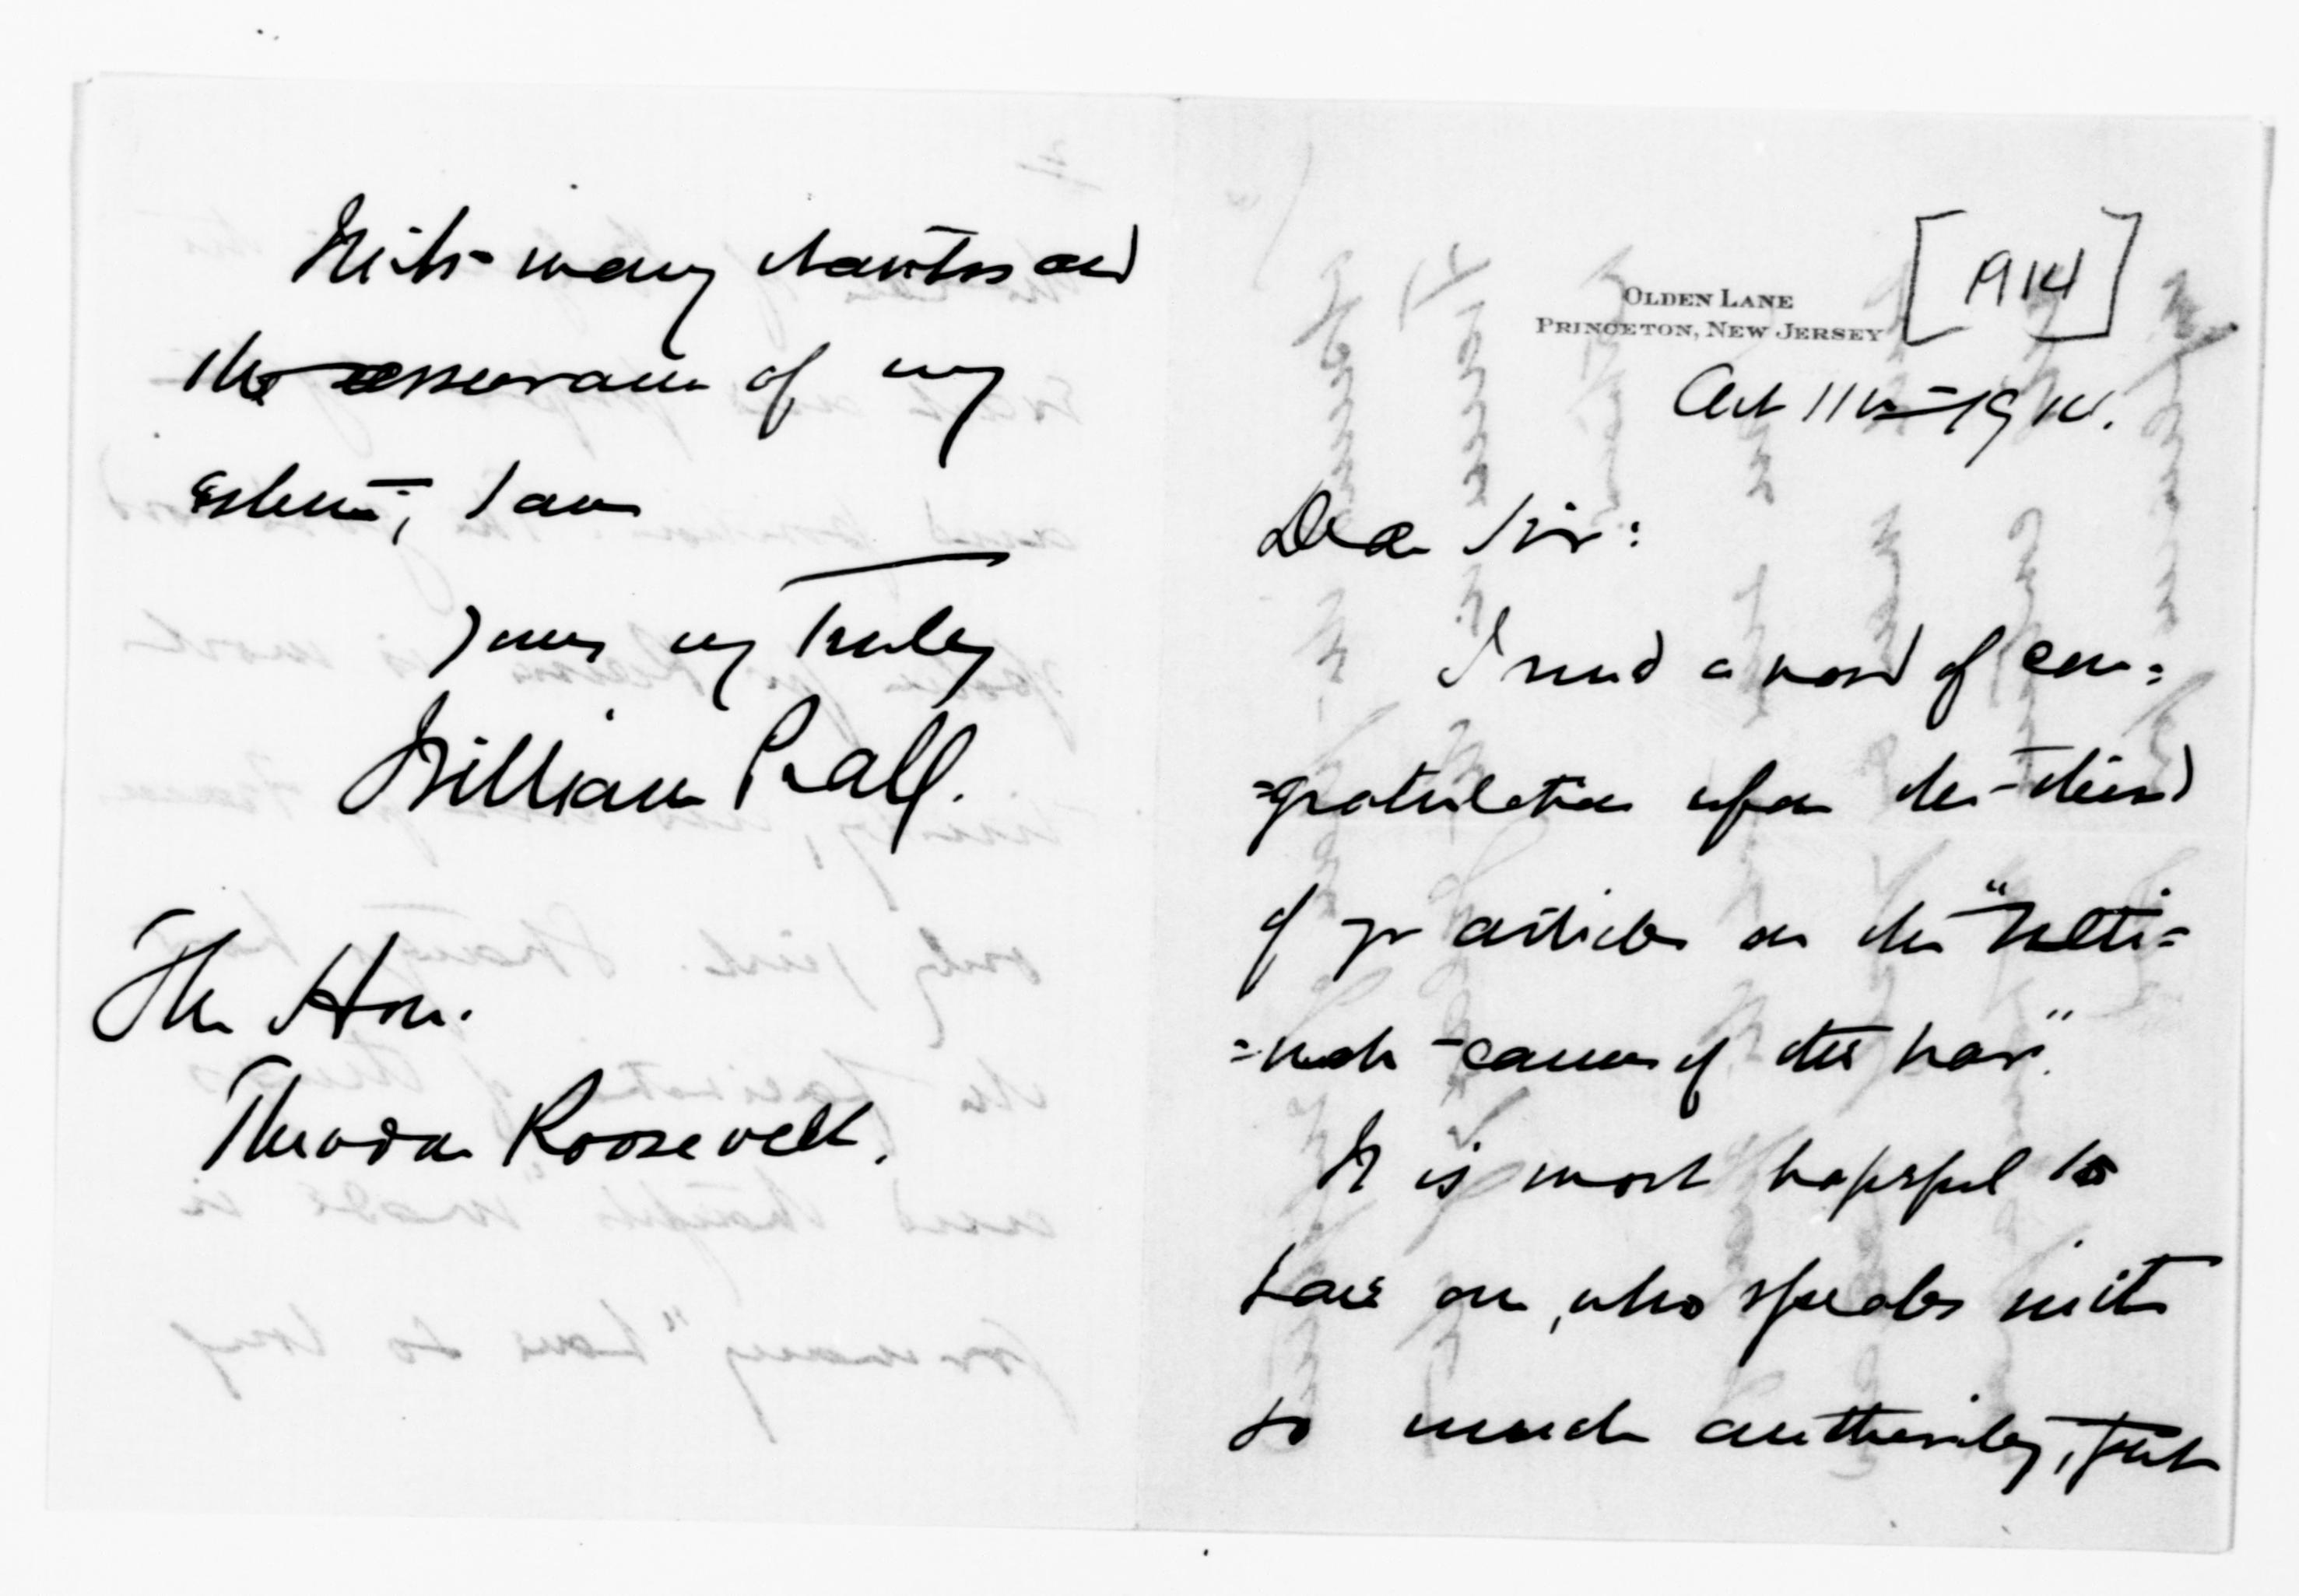 [1914]
OLDEN LANE
PRINCETON, NEW JERSEY
Oct 11th 1914.
Dear Sir:
I send a word of con=
=gratulation upon the third
of yr articles on the "Ulti=
=mate causes of the war".
It is most hopeful to
have one, who speaks with
so much authority,
With many thanks and
the assurance of my
esteem, I am
Yours vy truly
William Prall.
The Hon.
Theodore Roosevelt.